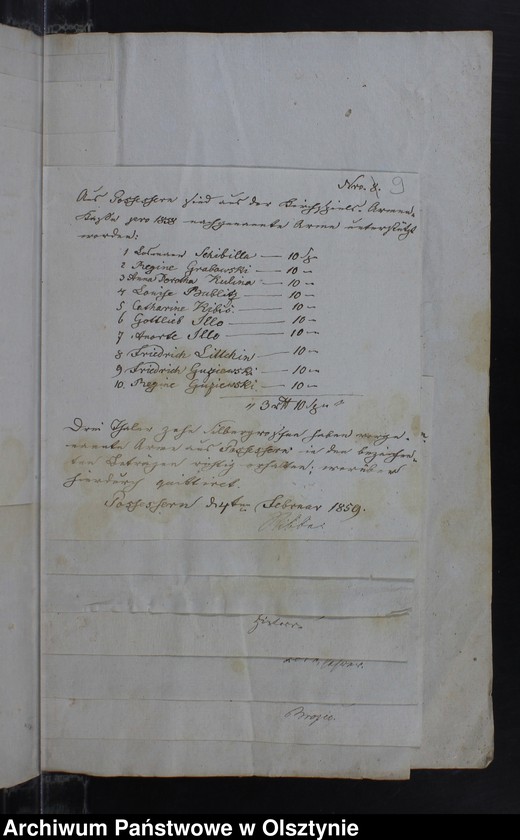 Nro. 8. 9
Aus sind aus der Kirchspiels-Armen-
Kasse pro 1858 nachgenannte Arme unterstützt
worden:
1 Schibilla — 10 Sg
2 Regine Grabowski — 10 "
3 Anna Dorothea Kulina — 10 "
4 Louise Bublitz — 10 "
5 Catharine Ribis — 10 "
6 Gottlieb Illo — 10 "
7 Anorte Illo — 10 "
8 Friedrich Littchin — 10 "
9 Friedrich Guziewski — 10 "
10. Regine Guziewski — 10 "
3 10
Drei Thaler zehn Silbergroschen haben vorge-
nannte Arme aus in den bezeichne-
ten Beträgen richtig erhalten, worüber
hierdurch quittiret.
d 4ten Februar 1859.
Archiwum Państwowe w Olsztynie